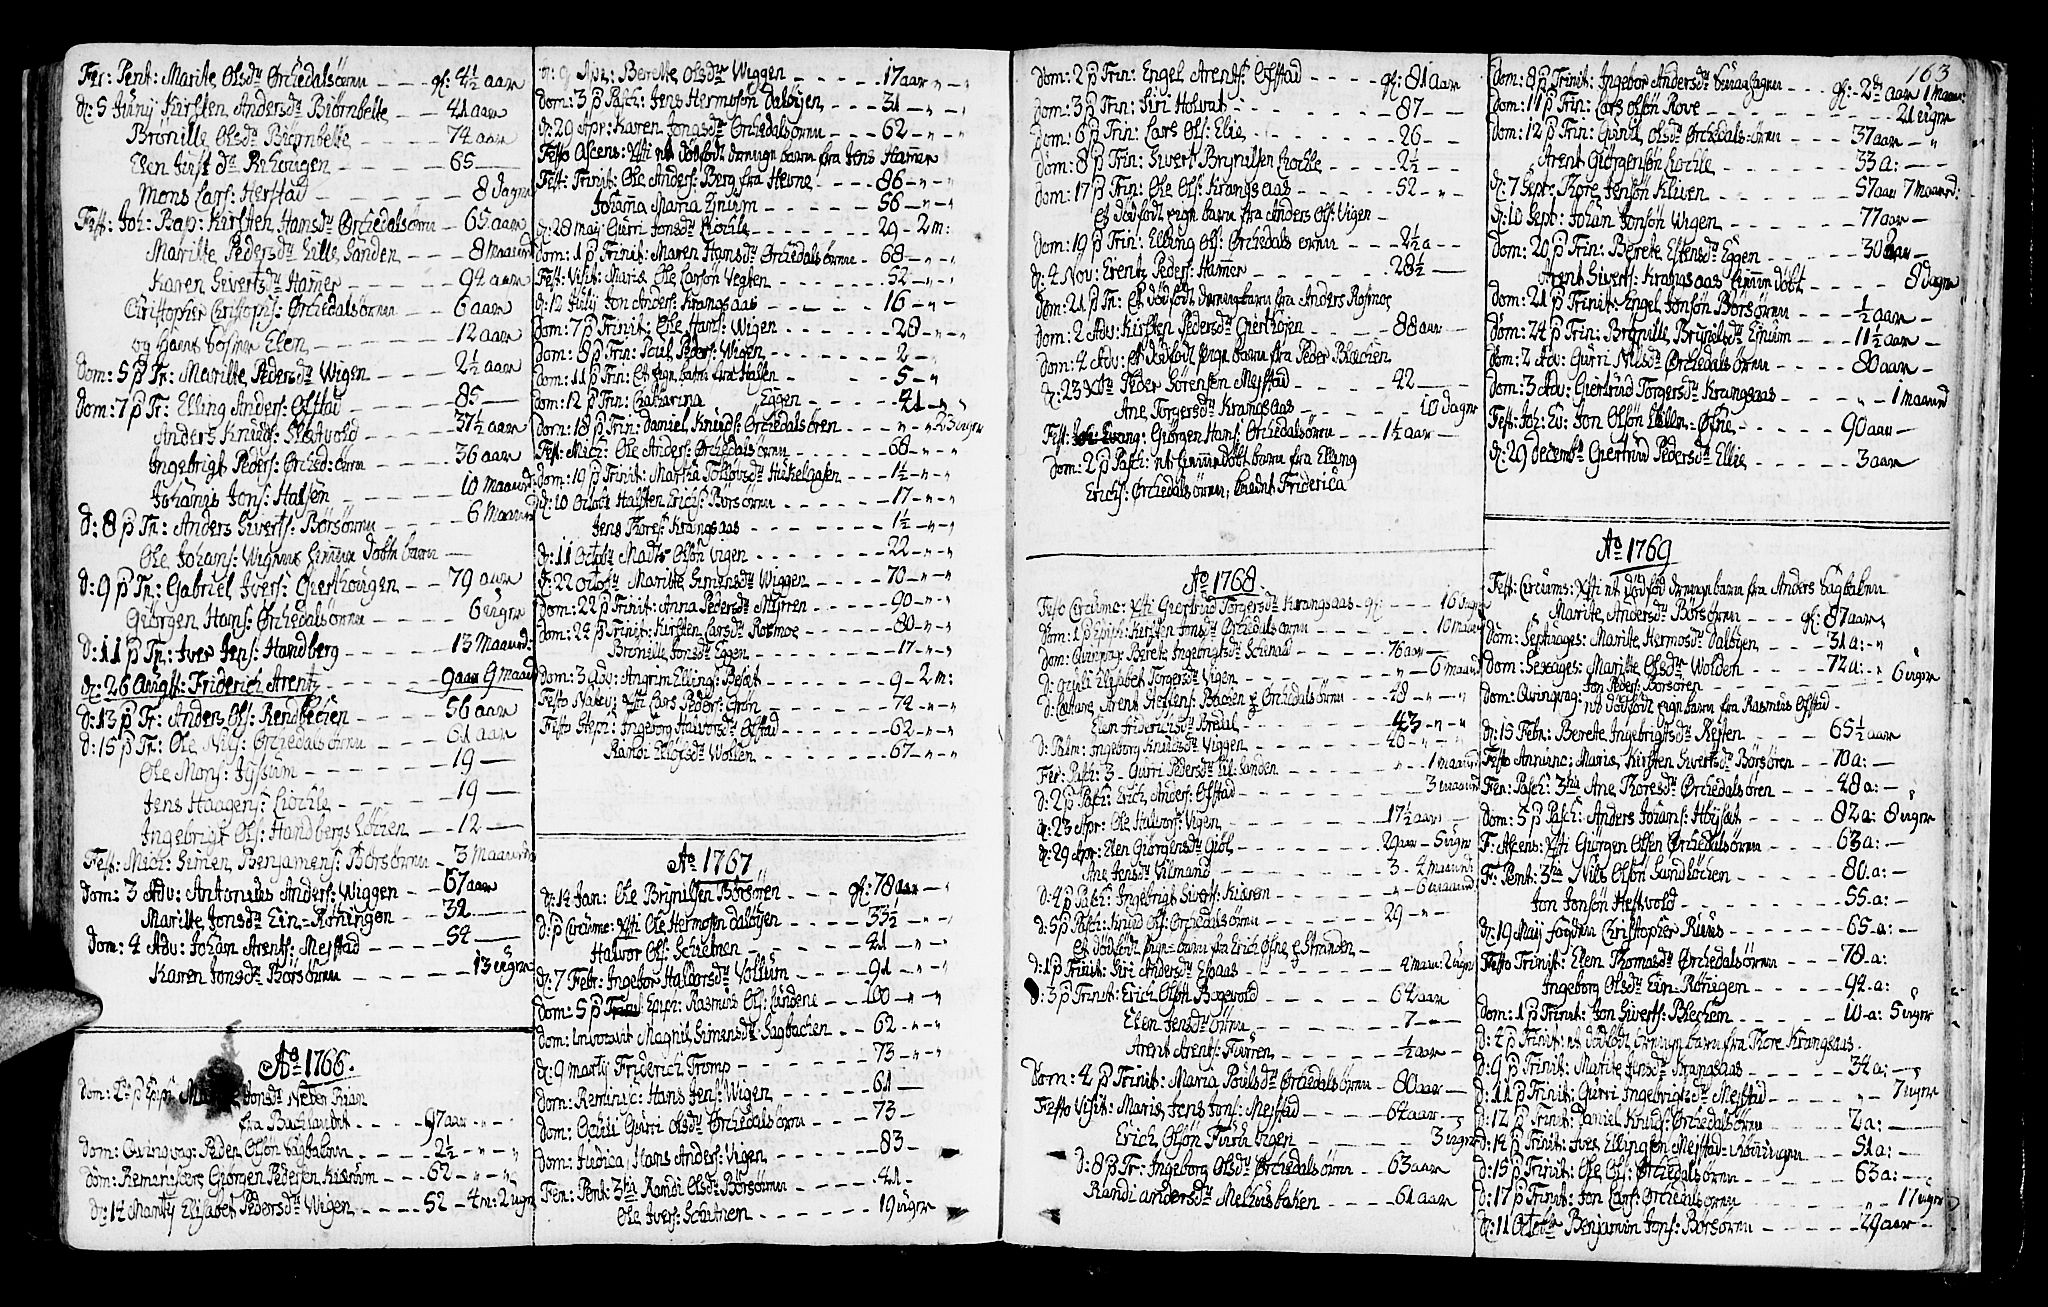 Fer: Pent: Marite Olsdr Ørchedalsörnn - gl: 4½ aar
d: 5 Junij Kirsten Andersdr Biörnbette - - 41 aar
Brönille Olsdr Biörnbette - - 74 aar
Elen Justdr - - 65
Mons Lars: Herstad - - 8 dagr
Fest: Joh: Bap: Kirsten Hansdr Ørchedalsörnn - 65 aar
Maritte Pedersdr Lille Sanden - - 8 Maand
Karen Sivertsdr Hamer - - 94 aar
Christopher Christophs: Ørchedalsörnn - - 6 aar
og hans Söster Elen - - 12 aar
Dom: 5 p Tr: Maritte Pedersdr Wigen - - 2½ aar
Dom: 7 p Tr: Elling Anders: Ofstad - - 85 -
Anders Knuds: Sletvold - - 37½ aar
Ingebrigt Peders: Ørched:örnn - - 36 aar
Johanes Jons: Halsen - - 10 Maand:
D: 8 p Tr: Anders Siverts: Börsörnn - - 6 Maand
Ole Johans: Wignes hiemme döbte barn -
D: 9 p Tr: Gabriel Ivers: Gierthougen - - 79 aar
Giörgen Hans: Ørchedalsörnn - - 6 ugr
D: 11 p Tr: Iver Jens: Handberg - - 13 Maand:
d: 26 Augst: Friderich Arentz - - 9 aar 9 maand
D: 13 p Tr: Anders Ols: Rendbechen - - 56 aar
D: 15 p Tr: Ole Nils: Ørchedalsörnn - - 61 aar
Ole Mons: Jyssum - - 19 -
Jens Haagens: Liochle - - 19 -
Ingebrigt Ols: Handbergs Löchen - - 12 -
Fest: Mich: Simen Benjamens: Börsörnn - 3 Maand
Dom: 3 Adv: Antonius Anders: Wiggen - - 67 aar
Maritte Jonsdr Ein-Röningen - - 32 -
Dom: 4 Adv: Johan Arents: Mejstad - - 54 -
Karen Jonsdr Börsörnn - - 13 ugr
Ao 1766.
Jonsdr Neder Fian
fra Buchlandet - - 97 aar - -
dom: Qvinqvag: Peder Olsön Sagbachn - - 2½ - "
dom: Reminiscere Giörgen Pedersen Kiærem - - 62 - " - "
d: 14 Martij Elisabet Pedersdr Wigen - - 52 - 4 m: 2 ugr
d: 9 Apr: Berette Olsdr Wiggen - - 17 aar - " - "
dom: 3 p Pasch: Jens Hermosön Dalöyen - - 31 - " - "
d: 29 Apr: Karen Jonsdr Ørchedalsörnn - - 62 - " - "
Festo Ascens: Xsti et dödfödt dreng barn fra Jens Hamer
Fest: Trinit: Ole Anders: Berg fra Hevne - - 86 - " - "
Johana Maria Enium - - 56 - " - "
d: 28 maij Gurri Jonsdr Liochle - - 29 - 2 m:
Dom: 1 p Trinit: Maren Hansdr Ørchedalsörnn - 68 - " - "
Fest: Visit: Mariæ Ole Larsön Vegten - - 52 - " - "
d: 12 Julij Jon Anders: Krangsaas - - 16 - " - "
Dom: 7 p Trinit: Ole Hans: Wigen - - 28 - " - "
Dom: 8 p Trin: Poul Peders: Wigen - - 2 - "
Dom: 11 p Trin: Et pign barn fra Hallen - - 5 - "
Dom: 12 p Trin: Catharina Eggen - - 41 - " - "
Dom: 18 p Trin: Daniel Knuds: Ørchedalsören - - " - " 23 ugr
Fest: Mich: Ole Anders: Ørchedalsörnn - - 68 - " - "
dom: 19 p Trinit: Martha Tollovsdr Hukelaasen - - 1½ - " - "
d: 10 Octobr Halsten Erichs: Börsörnn - - 17 - " - "
Jens Thores: Krangsaas - - 1½ - " - "
d: 11 Octobr Madts Olsön Vigen - - 22 - " - "
d: 22 Octobr Maritte Simensdr Wiggen - - 70 - " - "
Dom: 22 p Trinit: Anna Pedersdr Myren - - 90 - " - "
dom: 24 p Trinit: Kirsten Larsdr Rosmoe - - 80 - " - "
Brönille Jonsdr Eggen - - 17 - " - "
Dom: 3 Adv: Angrim Elling: Besæt - - 9 - 2 m:
Festo Nativ: Xsti Lars Peders: Grön - - 74 - " - "
Festo Steph: Ingeborg Halvorsdr Ofstad - - 62 - " - "
Randi Ellofsdr Wollen - - 67 - " - "
Ao 1767
d: 14 Jan: Ole Brynilsen Börsören - gl: 78 aar - "
d: p Circumc: Xsti Ole Hermosen Dalöyen - - 33½ - " - "
Halvor Ols: Schietnen - - 41 - " - "
d: 7 Febr: Ingebor Halvorsdr Vollum - - 91 - " - "
Dom: 5 p Epiph: Rasmus Ols: Lundene - - 100 - " - "
Dom: Invocavit Magnil Simensdr Sagbachen - - 62 - " - "
d: 9 martij Friderich Tromp - - 73 - " - "
Dom: Reminic: Hans Jens: Wigen - - 61 -
Dom: Oculi Gurri Olsdr Ørchedalsörnn - - 73 -
Dom: Judica, Hans Anders: Vigen - - 83 -
Fer: Pent: 3tia Randi Olsdr Börsörnn - - 41 -
Ole Ivers: Schetnen - - 19 ugr
163
Dom: 2 p Trin: Engel Arents: Ofstad - - gl: 81 aar
Dom: 3 p Trin: Siri Holvat: - - 87 -
Dom: 6 p Trin: Lars Ols: Elie - - 26 -
Dom: 8 p Trin: Sivert Brynilsen Liochle - - 2½ -
Dom: 17 p Trin: Ole Ols: Krangsaas - - 52 - "
Et dödfödt pign barn fra Anders Ols: Vigen -
Dom: 19 p Trin: Elling Ols: Ørchedals ornn - - 2½ a -
d: 4 Nov: Erentz Peders: Hamer - - 28½ -
Dom: 21 p Tr: Et dödfödt drengebarn fra Anders Rosmoe
Dom: 2 Adv: Kirsten Pedersdr Gierthojen - - 88 aar -
Dom: 4 Adv: et dödfödt pign barn fra Peder Blæchen
d: 23 Xbr Peder Sörensen Mejstad - - 42 -
Ane Torgersdr Krangsaas - - 10 dagr
Fest: Joh: Evang: Giörgen Hans: Ørchedalsörnn - - 1½ aar -
Dom: 2 p Pasch: et hiemdöbt barn fra Elling
Erichs: Ørchedalsörnn, kaldet Friderica
Ao 1768.
Festo Circumc: Xsti Giertrud Torgersdr Krangsaas - gl: - - 16 dagr
Dom: 1 p Epiph: Kirsten Jonsdr Ørchedalsörnn - - 10 maan
Dom: Qvinqvag: Berete Ingebrigtsdr Schinald - - 76 aar -
D: Oculi Elisabet Torgersdr Vigen - - " 6 maand
D: Lætare, Arent Steffens: Bachen & Ørchedalsörnn - 48 - " - "
Elen Friderichsdr Bredal - - 43 - " - "
D: Palm: Ingeborg Knudsdr Viggen - - 40 - " - "
Fer: Pasch: 3 - Gurri Pedersdr Lil-Sanden - - " 1 maand
D: 2 p Pasch: Erich Anders: Ofstad - - 3 maand
d: 23 Apr: Ole Halvors: Vigen - - 17½ aar -
d: 29 Apr: Elen Giörgensdr Giöl - - 29 aar - 5 ugr
Ane Jensdr Vilmand - - 3 - 4 maand:
D: 4 p Pasch: Ingebrigt Sivers: Kiæren - - " - 6 maand
D: 5 p Pasch: Knud Ols: Ørchedalsörnn - - 29 - " -
Et dödfödt pign-barn fra Erich Øsne & Stranden -
D: 1 p Trinit: Siri Andersdr Espaas - - 4 maan: 2 ugr
D: 3 p Trinit: Erich Olsön Bogevold - - 64 aar
Elen Jensdr Örnn - - 7 -
Arent Arents: Furren - - ½ aar -
Dom: 4 p Trinit: Maria Poulsdr Ørchedalsörnn - 80 aar -
Festo Visit: Mariæ, Jens Jons: Mejstad - - 64 aar -
Erich Olsön Furu Vigen - - 3 ugr
D: 8 p Tr: Ingeborg Olsdr Ørchedalsörnn - - 63 aar
Randi Andersdr Melhusbaken - - 61 aar
Dom: 8 p Trinit: Ingebor Andersdr - - gl: - 2 aar 1 Maan:
Dom: 11 p Trin: Lars Olsön Rove - - 21 ugr
Dom: 12 p Trin: Gunil Olsdr Ørchedals-örnn - 37 aar - "
Arent Giörgensön Liochle - - 33 a: -
d: 7 Sept: Thore Jensön Kliven - - 57 aar 7 Maand
d: 10 Sept: Johan Jonsön Wigen - - 77 aar -
Dom: 20 p Trin: Berete Estensdr Eggen - - 30 aar -
Arent Sivert: Krangsaas hiemdöbt - - 8 dagr
Dom: 21 p Trinit: Engel Jonsön Börsörnn - - ½ aar -
Dom: 24 p Trin: Brynille Brynilsdr Enium - - 11½ aar
Dom: 2 Adv: Gurri Nilsdr Ørchedalsörnn - - 80 aar -
Dom: 3 Adv: Giertrud Torgersdr Krangsaas - - " 1 maand
Fest: Joh: Ev: Jon Olsön Øsne - - 90 aar -
d: 29 decembr Giertrud Pedersdr Ellie - - 3 aar
Ao 1769
Fest: Circums: Xsti et dödfödt drengebarn fra Anders Sagbachn
Marite Andersdr Börsörnn - gl: 87 aar
Dom: Septuages: Marite Hermosdr Dalöyen - - 31 a: - "
Dom: Sexages: Maritte Olsdr Wolden - - 72 a: - "
Jon Peders: Börsören - - " 6 ugr
Dom: Qvinqvag: et dödfödt pign barn fra Rasmus Ofstad -
d: 15 Febr: Berette Ingebrigtsdr Resten - - 65½ aar
Festo Annunc: Mariæ, Kirsten Sivertsdr Börsören - - 70 a: -
Fer: Pasch: 3tia Ane Thoresdr Ørchedalsören - - 48 a: -
Dom: 5 p Pasch: Anders Johans: Höysæt - - 82 a: 8 ugr
F: Ascens: Xsti Giörgen Olsen Ørchedalsörnn - - 63 a: -
F: Pent: 3tia Nils Olsön Sundlöchen - - 80 a: -
Jon Jonsön Hestvold - - 55 a: -
d: 19 Maij Fogden Christopher Riiis - - 65 - a: -
Festo Trinit: Elen Thomasdr Ørchedalsörnn - - 78 - a:
Ingeborg Olsdr Ein-Rönigen - - 94 - a:
Dom: 1 p Trinit: Jon Siverts: Blechem - - 10 - a: 5 ugr
D: 2 p Trinit: et dödfödt drengebarn fra Thore Krangsaas.
D: 9 p Trinit: Marite Jensdr Krangsaas - - 34 a: -
D: 11 p Trinit: Gurri Ingebrigtsdr Mejstad - - " 7 ugr
D: 12 p Trinit: Daniel Knuds: Ørchedalsörnn - - 2 a: -
D: 14 p Trinit: Iver Ellingsen Mejstad-Rönningen - - 51 a: -
D: 15 p Trinit: Ole Ols: Ørchedalsörnn - - 63 a: -
D: 17 p Trinit: Jon Lars: Ørchedalsörnn - - 17 ugr
d: 11 Octobr Benjamin Jons: Börsörnn - - 29 aar -